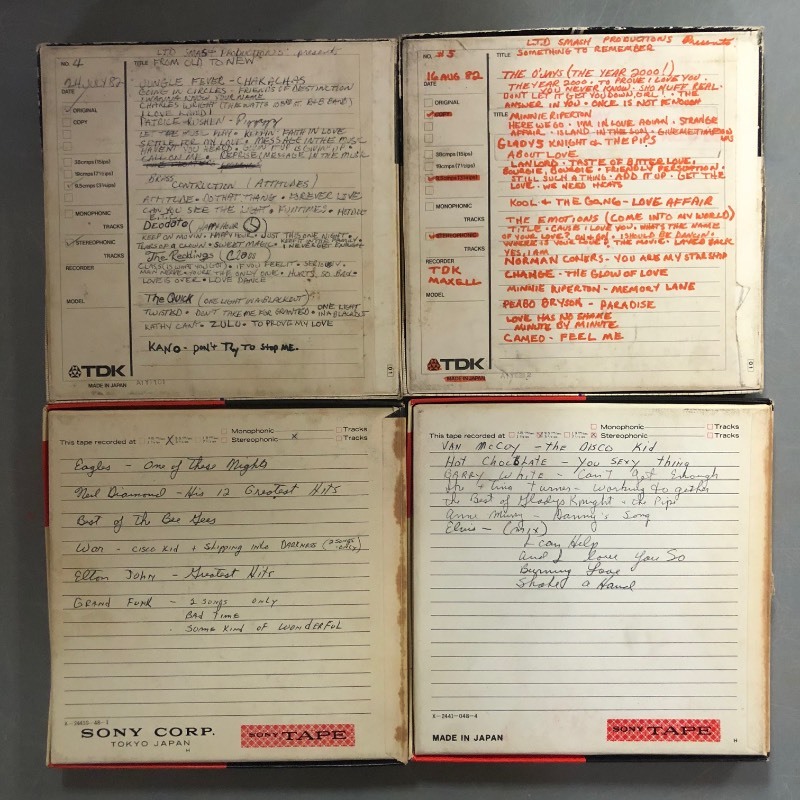 LTD SMASH PRODUCTIONS presents
NO. 4
TITLE FROM OLD TO NEW
24 JULY 82
DATE
JUNGLE FEVER - CHAKACHAS
GOING IN CIRCLES - FRIENDS OF DISTINCTION
ORIGINAL
COPY
CHARLES WRIGHT (THE WATTS 103RD ST R&B BAND)
I LOVE
PATRICE RUSHEN -
LET THE MUSIC PLAY
SETTLE FOR MY LOVE • MESSAGE IN THE MUSIC
HAVEN'T YOU HEARD
CALL ON ME
38cm/s (15ips)
19cm/s (7½ips)
9.5cm/s (3¾ips)
BRASS
CONSTRUCTION (ATTITUDES)
ATTITUDE • DO THAT THANG • FOREVER LOVE
CAN YOU SEE THE LIGHT • FUNTIMES •
MONOPHONIC
TRACKS
DEODATO (HAPPY HOUR)
KEEP ON MOVIN • HAPPY HOUR • JUST THIS ONE NIGHT •
KEEP IT IN THE FAMILY
STEREOPHONIC
TEARS OF A CLOWN • SWEET MAGIC • I NEVER GET ENOUGH
TRACKS
The Reddings (Class)
RECORDER
CLASS (IS WHAT YOU GOT) • IF YOU FEEL IT • SERIOUS •
MAIN NERVE • YOU'RE THE ONLY ONE • HURTS SO BAD •
LOVE IS OVER • LOVE DANCE
MODEL
The Quick (ONE LIGHT IN A BLACKOUT)
TWISTED • DON'T TAKE ME FOR GRANTED • ONE LIGHT IN A BLACKOUT
KATHY CAN'T • ZULU • TO PROVE MY LOVE
KANO - DON'T TRY TO STOP ME.
TDK
MADE IN JAPAN
LTD SMASH PRODUCTIONS Presents
NO. #5
TITLE SOMETHING TO REMEMBER
16 AUG 82
DATE
THE O'JAYS (THE YEAR 2000!)
THE YEAR 2000 • TO PROVE I LOVE YOU •
YOU NEVER KNOW • SHO NUFF REAL •
ORIGINAL
DON'T LET IT GET YOU DOWN, GIRL! • THE
COPY
ANSWER IN YOU • ONCE IS NOT ENOUGH
TITLE MINNIE RIPERTON
HERE WE GO • I'M IN LOVE AGIAN • STRANGE
AFFAIR • ISLAND IN THE SUN • GIVE ME TIME
GLADYS KNIGHT & THE PIPS
38cm/s (15ips)
ABOUT LOVE
19cm/s (7½ips)
LANLORD • TASTE OF BITTER LOVE •
BOURGIE, BOURGIE • FRIENDLY PERSOPTION •
9.5cm/s (3¾ips)
STILL SUCH A THING • ADD IT UP • GET THE
LOVE • WE NEED HEARTS
MONOPHONIC
KOOL & THE GANG - LOVE AFFAIR
TRACKS
THE EMOTIONS (COME INTO MY WORLD)
STEREOPHONIC
TITLE • CAUSE I LOVE YOU • WHATS THE NAME
OF YOUR LOVE? • ON & ON • I SHOULD BE DANCING
TRACKS
WHERE IS YOUR LOVE • THE MOVIE • LAYED BACK
YES, I AM
RECORDER
NORMAN CONERS - YOU ARE MY STAR SHIP
TDK
MAXELL
CHANGE - THE GLOW OF LOVE
MODEL
MINNIE RIPERTON - MEMORY LANE
PEABO BRYSON - PARADISE
LOVE HAS NO SHAME
MINUTE BY MINUTE
CAMEO - FEEL ME
TDK
MADE IN JAPAN
This tape recorded at X
Monophonic Tracks
Stereophonic X Tracks
Eagles - One of These Nights
Neil Diamond - His 12 Greatest Hits
Best of the Bee Gees
War - CISCO KID + Slipping into DARKNESS (2 SONGS ONLY)
Elton John - Greatest Hits
GRAND FUNK - 2 SONGS ONLY
BAD TIME
SOME KIND OF WONDERFUL
SONY CORP.
TOKYO JAPAN
H
SONY TAPE
This tape recorded at
Monophonic Tracks
Stereophonic Tracks
VAN McCOY - the DISCO Kid
Hot ChocBlate - You Sexy thing
BARRY White - Can't Get Enough
Ike + Tina Turner - Working together
the Best of Gladys Knight + the Pips
Anne Murray - Danny's Song
Elvis - (mix)
I can Help
And I love You So
Burning Love
Shake a Hand
X-2441-048-4
MADE IN JAPAN
SONY TAPE
H